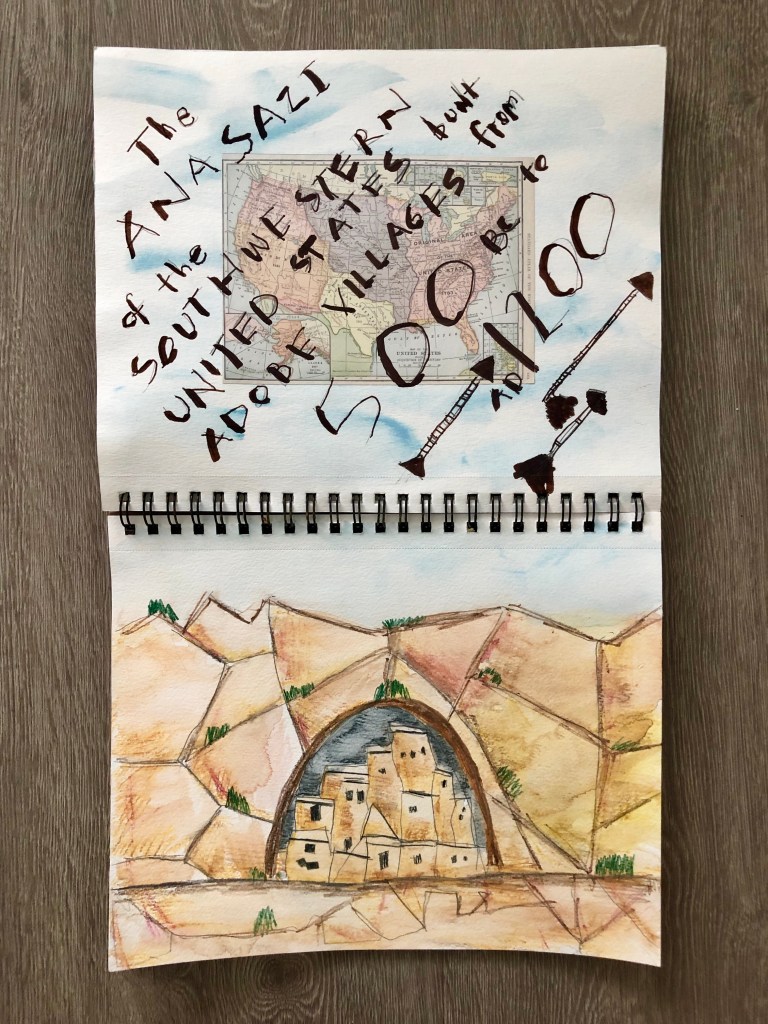 The
ANASAZI
of the
SOUTHWESTERN
UNITED STATES built
ADOBE VILLAGES from
500 BC to
AD 1200
ORIGINAL AREA
UNITED STATES
UNITED STATES